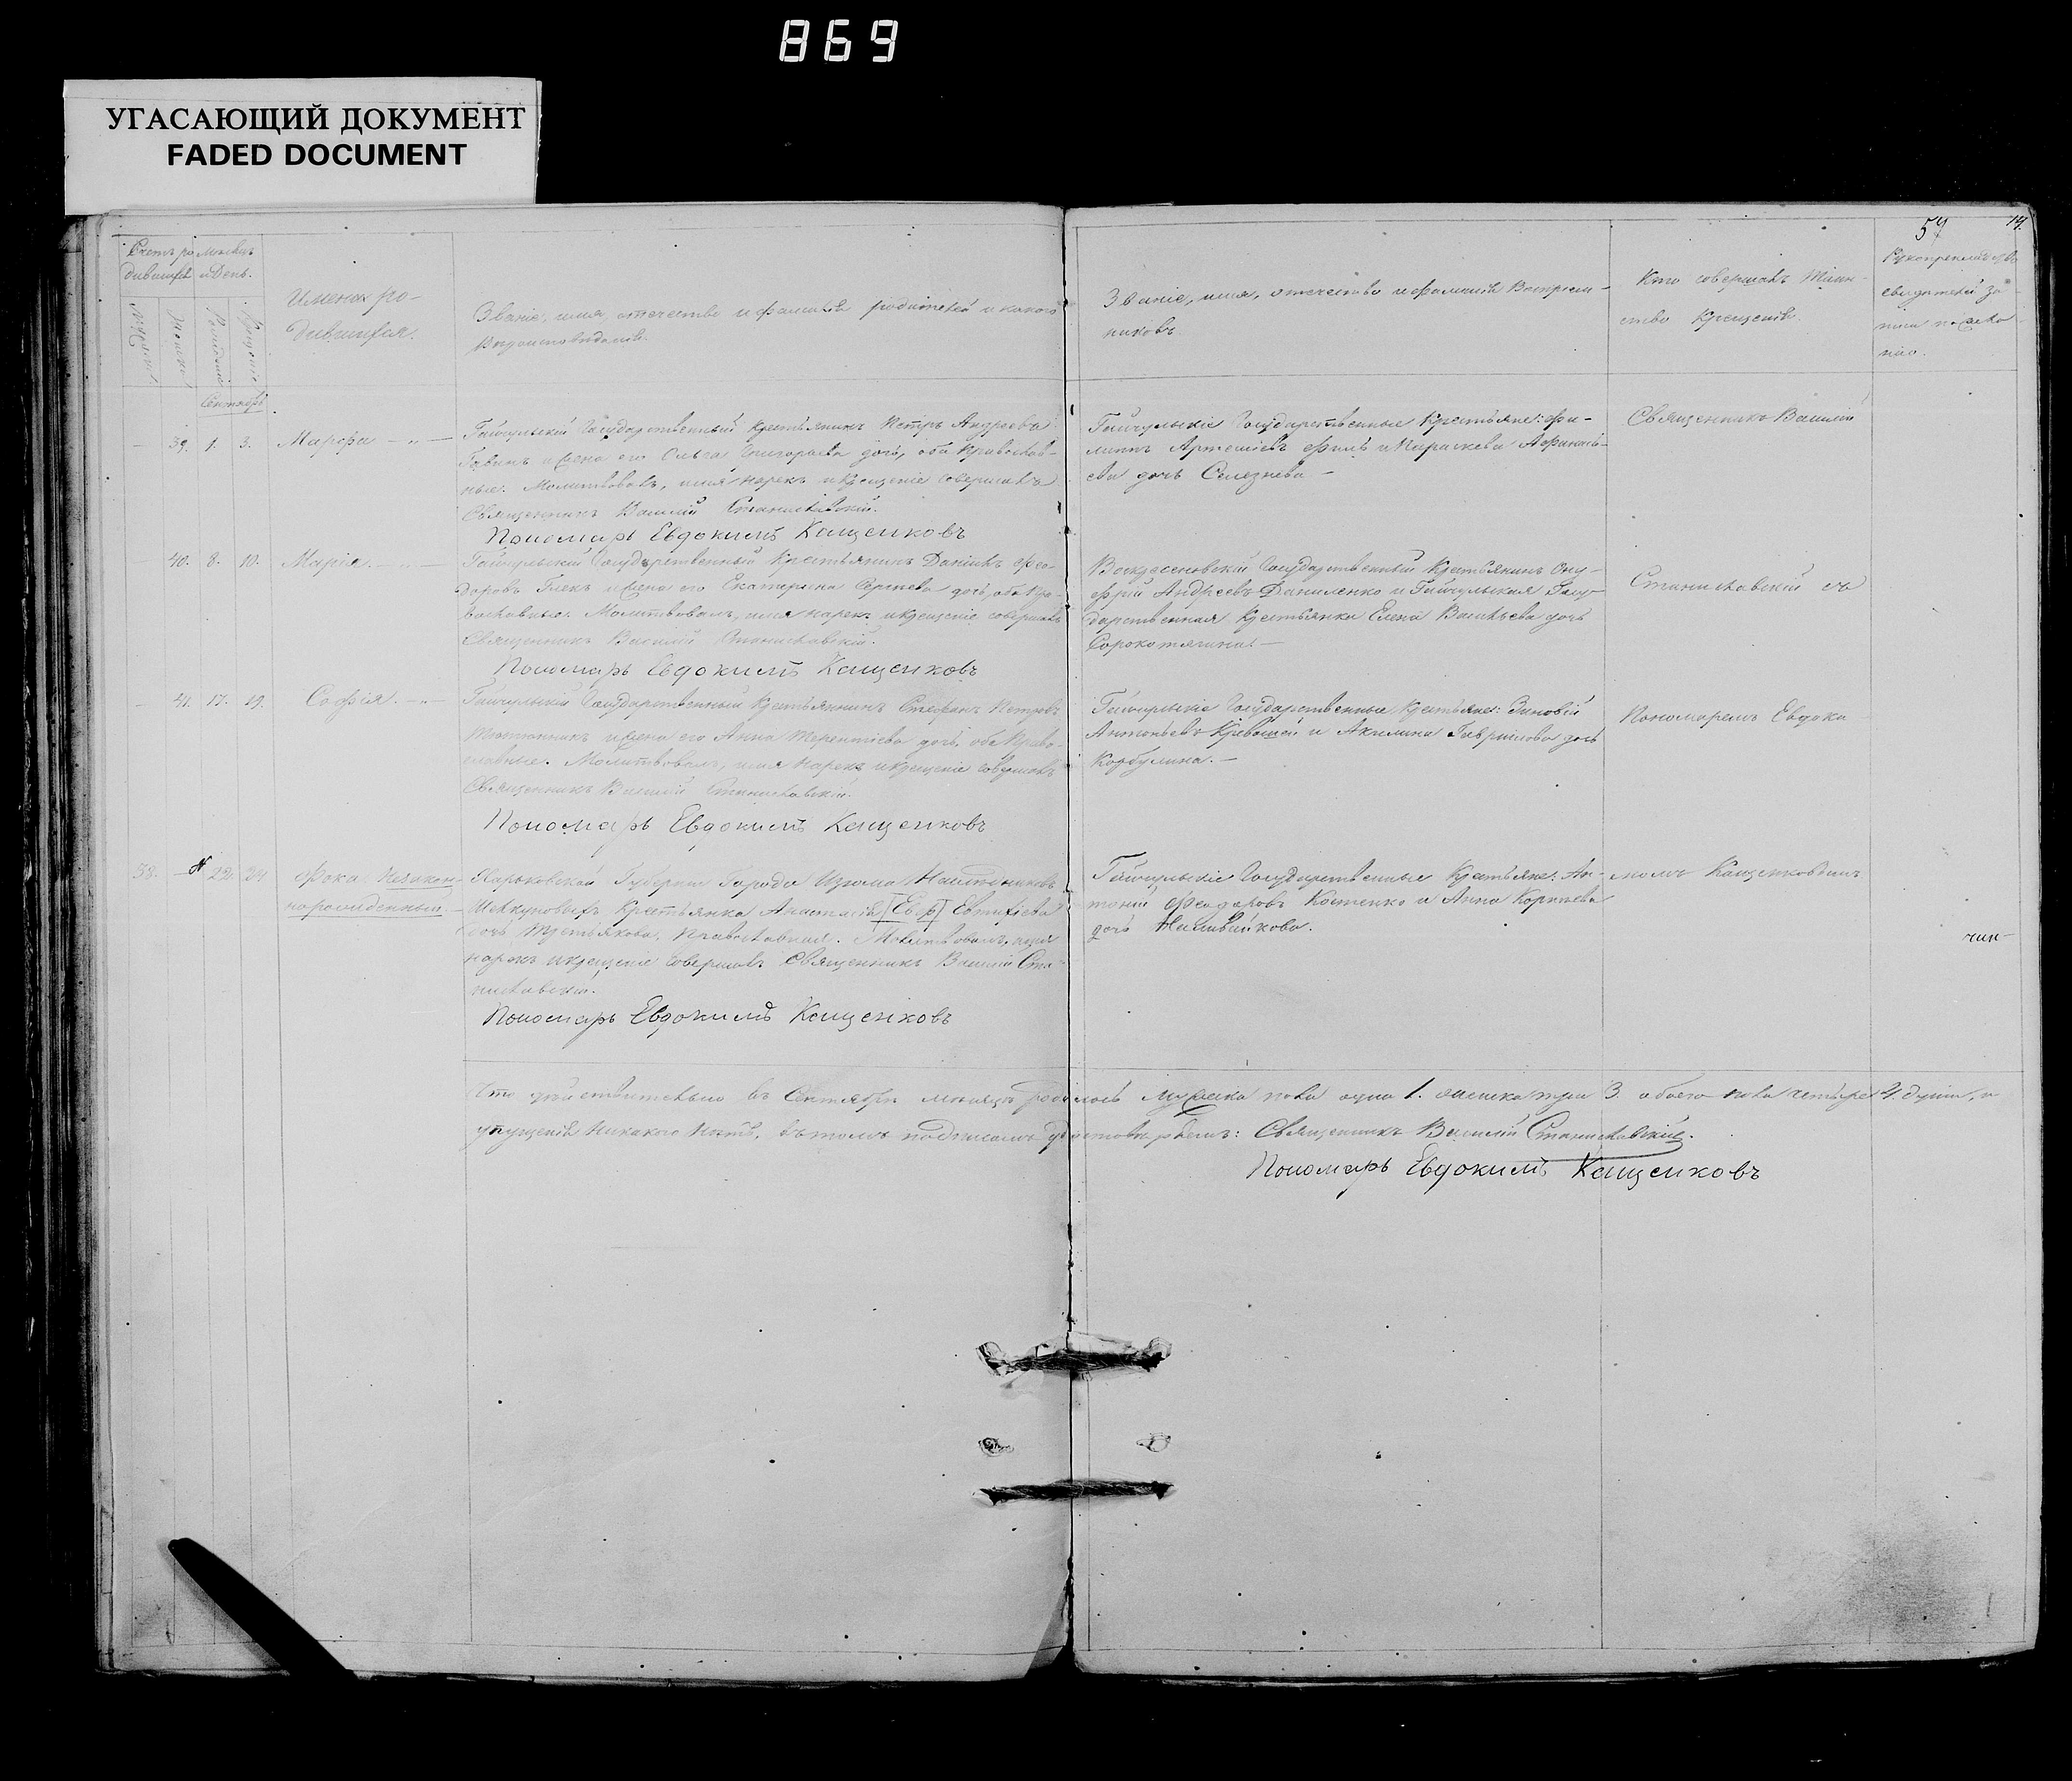 869
УГАСАЮЩИЙ ДОКУМЕНТ
FADED DOCUMENT
59
Счетъ ро Мѣсяцъ
дившихся и День.
Имена ро-
дившихся.
Званіе, имя, отчество и фамилія родителей и какого
Вѣроисповѣданія.
Званіе, имя, отчество и фамилія Воспріем-
никовъ.
Кто совершалъ Таин-
ство Крещенія.
Рукоприкладство
свидѣтелей за-
писи по жела-
нію.
Сентябрь
39. 1. 3. Марѳа
Гайчульскій Государственный Крестьянинъ Петръ Андреевъ
жена его Ольга Григорьева дочь, оба Православ-
ные. Молитвовалъ, имя нарекъ и крещеніе совершалъ
Священникъ Василій Станиславскій.
Пономарь Евдокимъ Кащенковъ
Гайчульскіе Государственные Крестьяне: Фи-
липпъ Артемьевъ и Параскева Афанась-
ева дочь Селезнева
Священникъ Василій
40. 8. 10. Марія.
Гайчульскій Государственный Крестьянинъ Даніилъ Фео-
доровъ и жена его Екатерина Сергеева дочь, оба Пра-
вославные. Молитвовалъ, имя нарекъ и крещеніе совершалъ
Священникъ Василій Станиславскій.
Пономарь Евдокимъ Кащенковъ
Воскресеновскій Государственный Крестьянинъ Ону-
фрій Андреевъ Даниленко и Гайчульская Госу-
дарственная Крестьянка Елена Васильева дочь
Сорокотягина
Станиславскій съ
41. 17. 19. Софія.
Гайчульскій Государственный Крестьянинъ Стефанъ Петровъ
и жена его Анна Терентіева дочь, оба Право-
славные. Молитвовалъ, имя нарекъ и крещеніе совершалъ
Священникъ Василій Станиславскій.
Пономарь Евдокимъ Кащенковъ
Гайчульскіе Государственные Крестьяне: Зиновій
Антоньевъ и Акилина Гаврилова дочь
Корбулина.
Пономаремъ Евдоки
38. 22. 24 Фока. Незакон-
норожденный.
Харьковской Губерніи Города Изюма Наслѣдниковъ
Шелкуновыхъ Крестьянка Анастасія Евтихіева
дочь Третьякова, Православная. Молитвовалъ, имя
нарекъ и крещеніе совершалъ Священникъ Василій Ста-
ниславскій.
Пономарь Евдокимъ Кащенковъ
Гайчульскіе Государственные Крестьяне: Ан-
тоній Феодоровъ Костенко и Анна Корнѣева
дочь Наливайкова.
момъ Кащенковымъ
Что дѣйствительно въ Сентябрѣ мѣсяцѣ родилось мужеска пола одна 1. женска три 3. обоего пола четыре 4. души, и
упущенія никакого нѣтъ, въ томъ подписомъ удостовѣряемъ: Священникъ Василій Станиславскій.
Пономарь Евдокимъ Кащенковъ